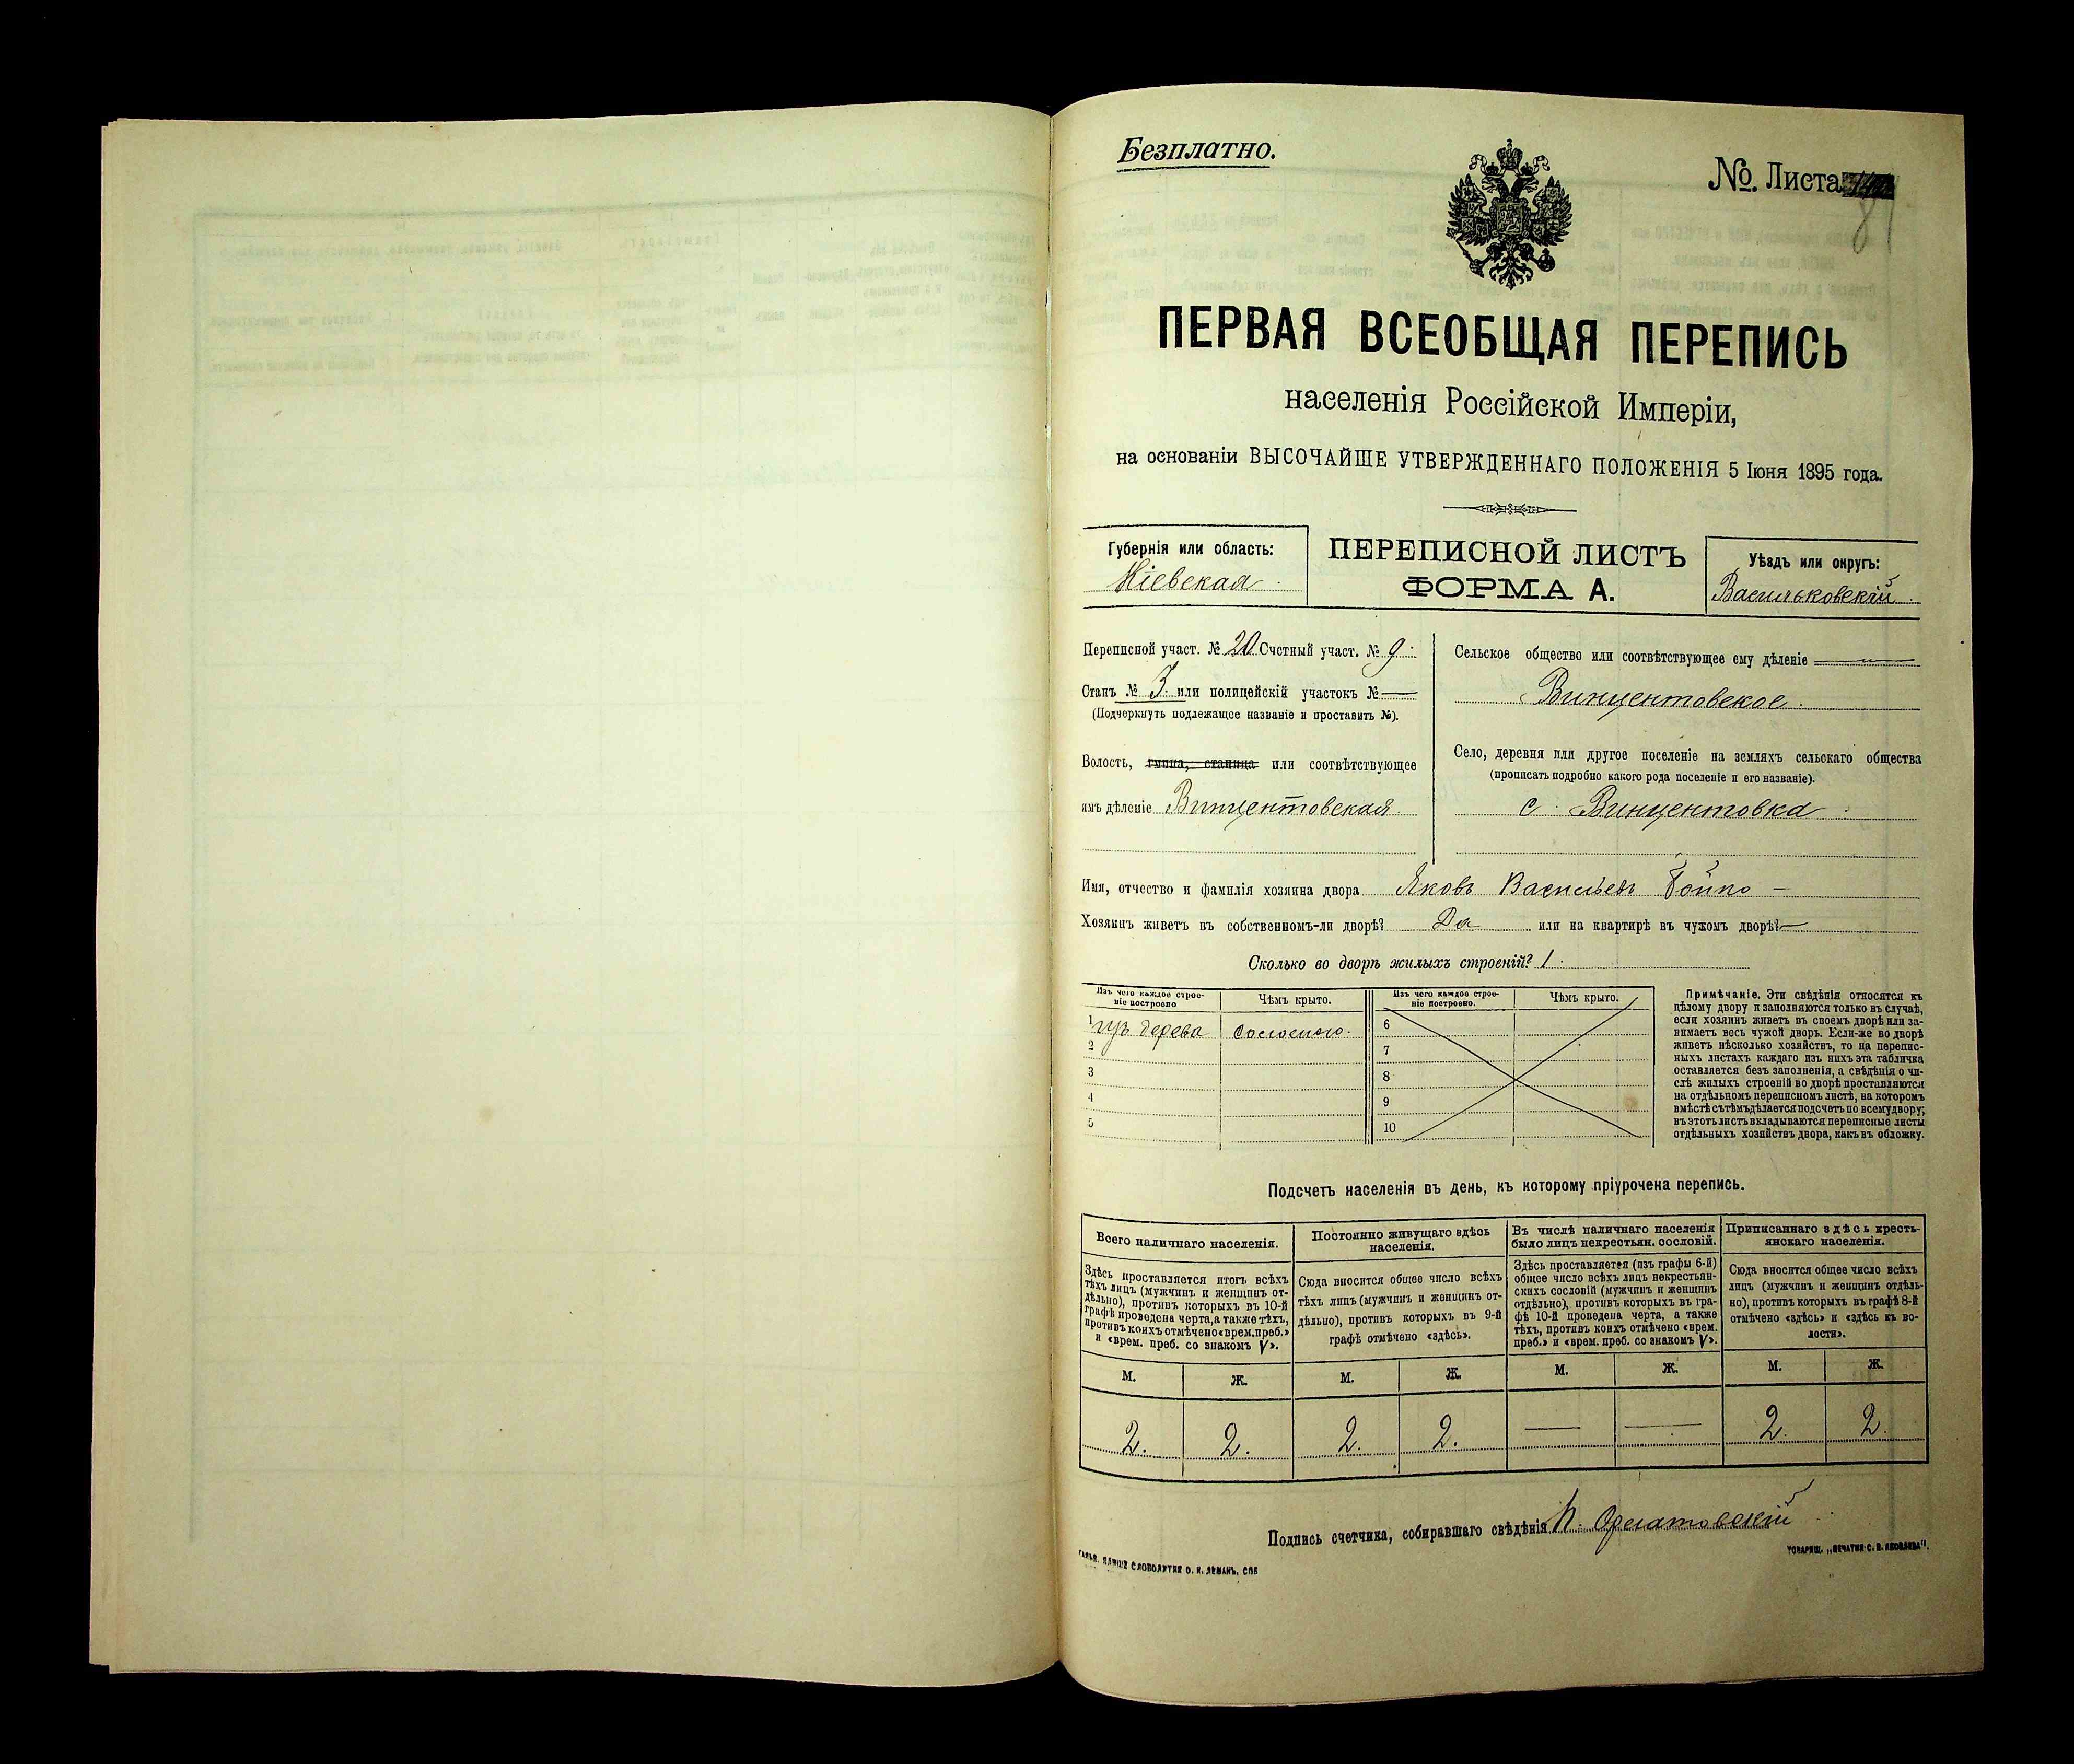 Безплатно.
№. Листа
ПЕРВАЯ ВСЕОБЩАЯ ПЕРЕПИСЬ
населенія Россійской Имперіи,
на основаніи ВЫСОЧАЙШЕ УТВЕРЖДЕННАГО ПОЛОЖЕНІЯ 5 Іюня 1895 года.
Губернія или область:
Кіевская
ПЕРЕПИСНОЙ ЛИСТЪ
ФОРМА А.
Уѣздъ или округъ:
Васильковскій
Переписной участ. № 20 Счетный участ. № 9
Станъ № 3. или полицейскій участокъ № —
(Подчеркнуть подлежащее названіе и проставить №).
Волость, гмина, станица или соотвѣтствующее
имъ дѣленіе Винцентовская
Сельское общество или соотвѣтствующее ему дѣленіе
Винцентовское
Село, деревня или другое поселеніе на земляхъ сельскаго общества
(прописать подробно какого рода поселеніе и его названіе).
с. Винцентовка
Имя, отчество и фамилія хозяина двора Яковъ Васильевъ Бойко —
Хозяинъ живетъ въ собственномъ-ли дворѣ? Да или на квартирѣ въ чужомъ дворѣ? —
Сколько во дворѣ жилыхъ строеній? 1
Изъ чего каждое строе-
ніе построено
Чѣмъ крыто.
Изъ чего каждое строе-
ніе построено.
Чѣмъ крыто.
1 изъ дерева соломою.
2
3
4
5
6
7
8
9
10
Примѣчаніе. Эти свѣдѣнія относятся къ
цѣлому двору и заполняются только въ случаѣ,
если хозяинъ живетъ въ своемъ дворѣ или за-
нимаетъ весь чужой дворъ. Если-же во дворѣ
живетъ нѣсколько хозяйствъ, то на перепис-
ныхъ листахъ каждаго изъ нихъ эта табличка
оставляется безъ заполненія, а свѣдѣнія о чи-
слѣ жилыхъ строеній во дворѣ проставляются
на отдѣльномъ переписномъ листѣ, на которомъ
вмѣстѣ съ тѣмъ дѣлается подсчетъ по всему двору;
въ этотъ листъ вкладываются переписные листы
отдѣльныхъ хозяйствъ двора, какъ въ обложку.
Подсчетъ населенія въ день, къ которому пріурочена перепись.
Всего наличнаго населенія.
Здѣсь проставляется итогъ всѣхъ
тѣхъ лицъ (мужчинъ и женщинъ от-
дѣльно), противъ которыхъ въ 10-й
графѣ проведена черта, а также тѣхъ,
противъ коихъ отмѣчено «врем. преб.»
и «врем. преб. со знакомъ V».
Постоянно живущаго здѣсь
населенія.
Сюда вносится общее число всѣхъ
тѣхъ лицъ (мужчинъ и женщинъ от-
дѣльно), противъ которыхъ въ 9-й
графѣ отмѣчено «здѣсь».
Въ числѣ наличнаго населенія
было лицъ некрестьян. сословій.
Здѣсь проставляется (изъ графы 6-й)
общее число всѣхъ лицъ некрестьян-
скихъ сословій (мужчинъ и женщинъ
отдѣльно), противъ которыхъ въ гра-
фѣ 10-й проведена черта, а также
тѣхъ, противъ коихъ отмѣчено «врем.
преб.» и «врем. преб. со знакомъ V».
Приписаннаго здѣсь кресть-
янскаго населенія.
Сюда вносится общее число всѣхъ
лицъ (мужчинъ и женщинъ отдѣль-
но), противъ которыхъ въ графѣ 8-й
отмѣчено «здѣсь» и «здѣсь къ во-
лости».
М. Ж. М. Ж. М. Ж. М. Ж.
2. 2. 2. 2. — — 2. 2.
Подпись счетчика, собиравшаго свѣдѣнія
СЛОВОЛИТНЯ О. И. ЛЕМАНЪ, СПБ
ТОВАРИЩ. „ПЕЧАТНЯ С. П. ЯКОВЛЕВА".